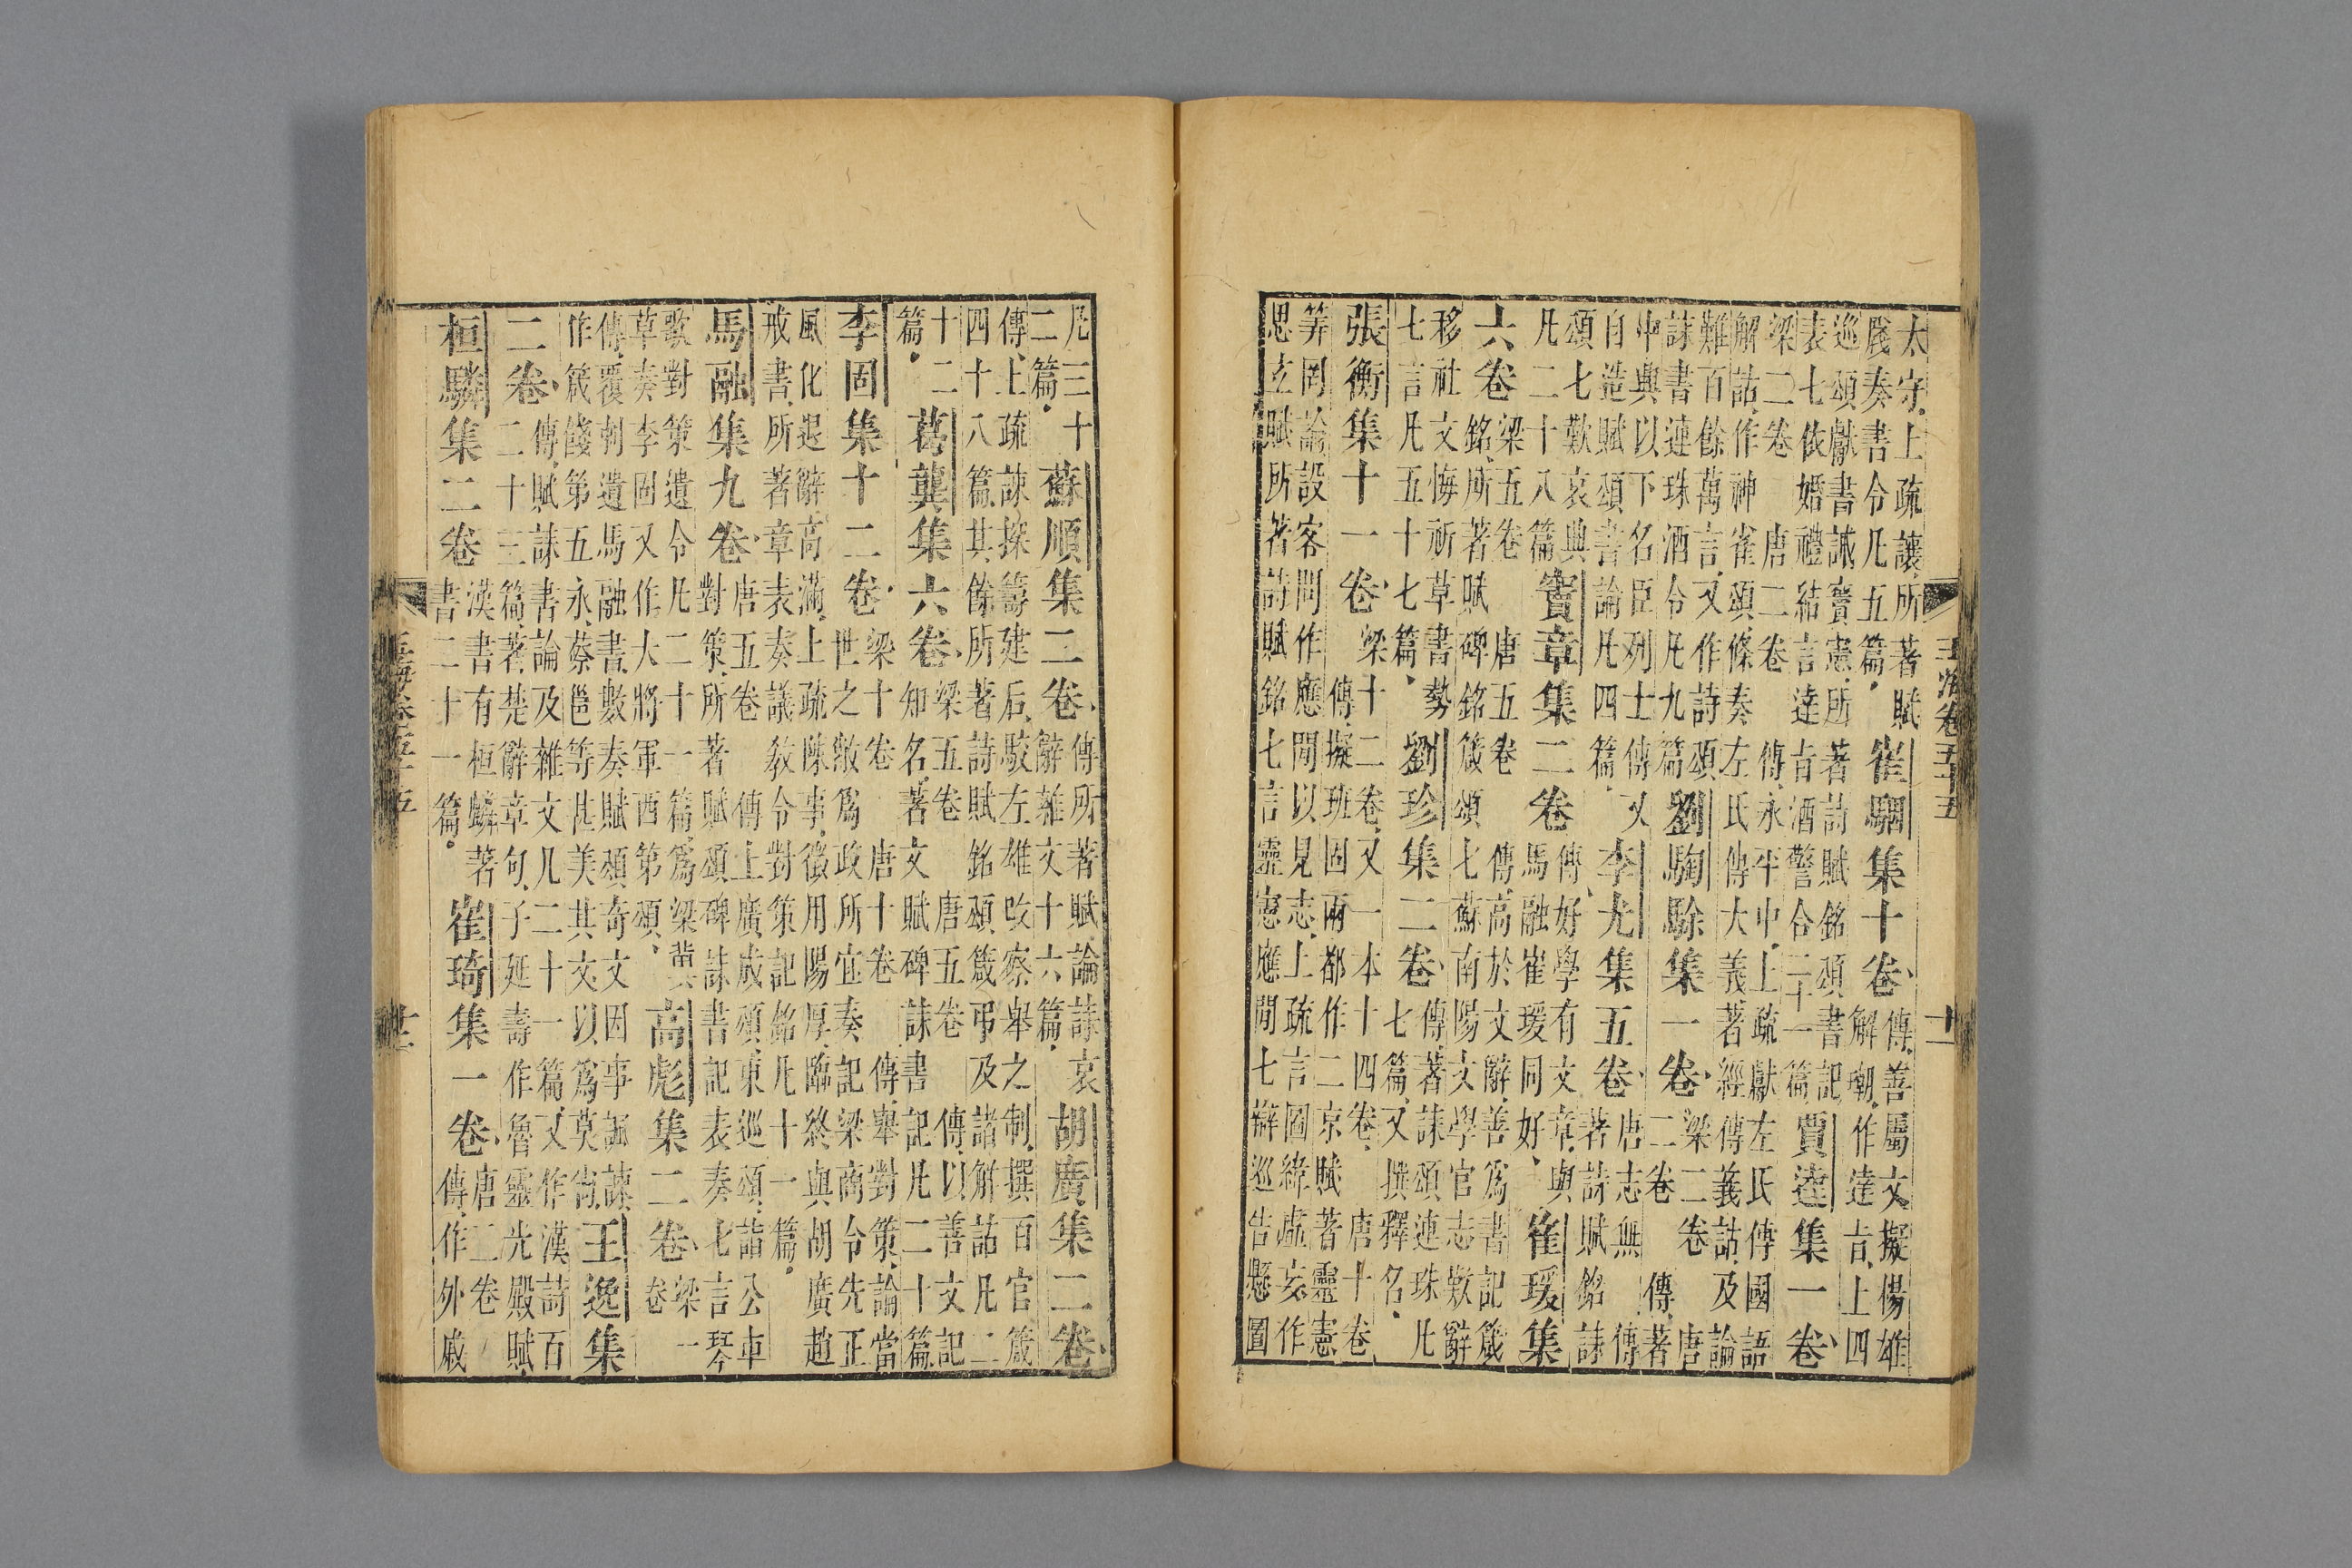 玉海卷五十五 十一
太守上疏讓所著賦
牋奏書令凡五篇
崔駰集十卷
傳善屬文擬楊雄
解嘲作達旨上四
巡頌獻書誡竇憲所著詩賦銘頌書記
表七依婚禮結言達旨酒警合二十一篇
賈逵集一卷
梁二卷 唐二卷 傳永平中上疏獻左氏傳國語
解詁作神雀頌條奏左氏傳大義著經傳義詁及論
難百餘萬言又作詩頌
誄書連珠酒令凡九篇
劉騊駼集一卷
梁二卷 唐
二卷 傳著
中興以下名臣列士傳又
自造賦頌書論凡四篇
李尤集五卷
唐志無 傳
著詩賦銘誄
頌七歎哀典
凡二十八篇
竇章集二卷
傳好學有文章與
馬融崔瑗同好
崔瑗集
六卷
梁五卷 唐五卷 傳高於文辭善爲書記箴
銘所著賦碑銘箴頌七蘇南陽文學官志歎辭
移社文悔祈草書勢
七言凡五十七篇
劉珍集二卷
傳著誄頌連珠凡
七篇又撰釋名
張衡集十一卷
梁十二卷又一本十四卷唐十卷
傳擬班固兩都作二京賦著靈憲
筭罔論設客問作應閒以見志上疏言圖緯虛妄作
思玄賦所著詩賦銘七言靈憲應閒七辯巡告懸圖
凡三十
二篇
蘇順集二卷
傳所著賦論誄哀
辭雜文十六篇
胡廣集二卷
傳上疏諫探籌建后駮左雄改察舉之制撰百官箴
四十八篇其餘所著詩賦銘頌箴弔及諸解詁凡二
十二
篇
葛龔集六卷
梁五卷 唐五卷 傳以善文記
知名著文賦碑誄書記凡二十篇
李固集十二卷
梁十卷 唐十卷 傳舉對策論當
世之敝爲政所宜奏記梁商令先正
風化退辭高滿上疏陳事徵用陽厚臨終與胡廣趙
戒書所著章表奏議教令對策記銘凡十一篇
馬融集九卷
唐五卷 傳上廣成頌東巡頌詣公車
對策所著賦頌碑誄書記表奏七言琴
歌對策遺令凡二十一篇爲梁冀
草奏李固又作大將軍西第頌
高彪集二卷
梁一
卷
傳覆刺遺馬融書數奏賦頌奇文因事諷諫
作箴餞第五永蔡邕等甚美其文以爲莫尚
王逸集
二卷
傳賦誄書論及雜文凡二十一篇又作漢詩百
二十三篇著楚辭章句子延壽作魯靈光殿賦
桓驎集二卷
漢書有桓驎著
書二十一篇
崔琦集一卷
唐二卷
傳作外戚